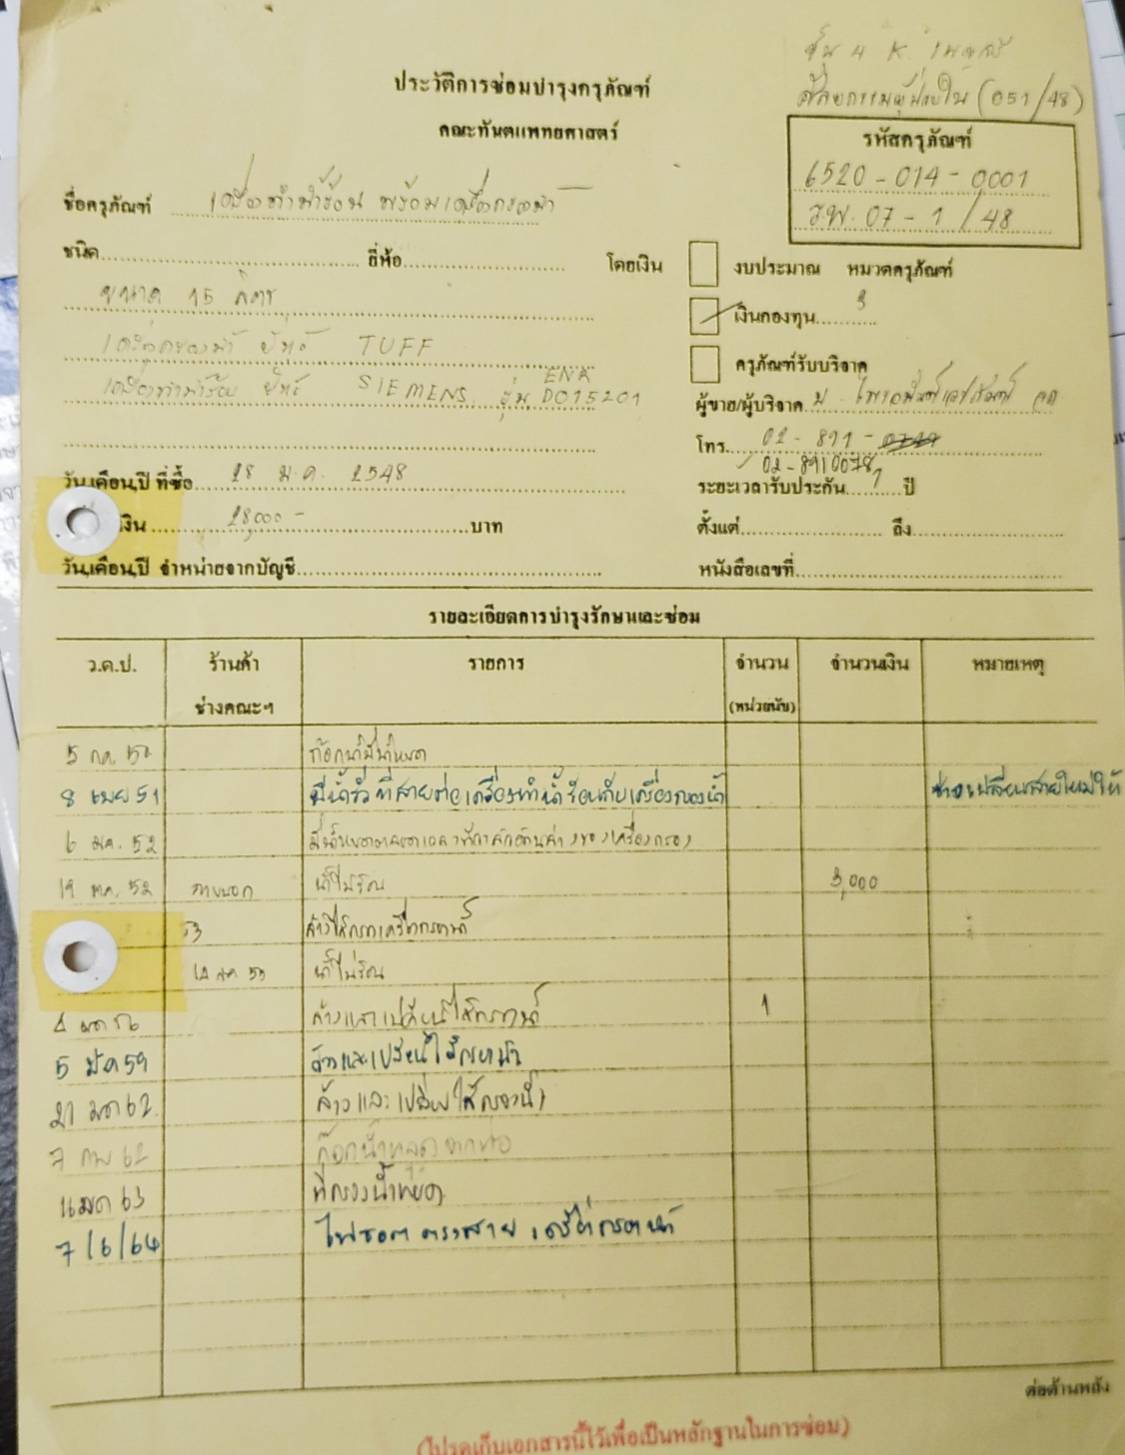 ชั้น 4
(051/48)
ประวัติการซ่อมบำรุงครุภัณฑ์
คณะทันตแพทยศาสตร์
รหัสครุภัณฑ์
6520-014-0001
รพ. 07-1/48
ชื่อครุภัณฑ์ เครื่องทำน้ำร้อน พร้อมเครื่องกรองน้ำ
ชนิด ยี่ห้อ โดยเงิน งบประมาณ หมวดครุภัณฑ์
ขนาด 15 ลิตร
เงินกองทุน
เครื่องกรองน้ำ ยี่ห้อ TUFF
ครุภัณฑ์รับบริจาค
เครื่องทำน้ำร้อน ยี่ห้อ SIEMENS รุ่น DO15201
ผู้ขาย/ผู้บริจาค
โทร. 02-891-
02-8910078
วัน,เดือน,ปี ที่ซื้อ 28 ม.ค. 2548
ระยะเวลารับประกัน 1 ปี
เงิน 28,000 - บาท
ตั้งแต่ ถึง
วัน,เดือน,ปี จำหน่ายจากบัญชี
หนังสือเลขที่
รายละเอียดการบำรุงรักษาและซ่อม
ว.ด.ป. ร้านค้า รายการ จำนวน จำนวนเงิน หมายเหตุ
ช่างคณะฯ (หน่วยนับ)
ก๊อกน้ำมีน้ำหยด
8 เมย 51 มีน้ำรั่วที่สายต่อเครื่องทำน้ำร้อนกับเครื่องกรองน้ำ ช่างเปลี่ยนสายใหม่ให้
6 มค. 52
19 ตค. 52 ภายนอก น้ำไม่ร้อน 3,000
53 ล้างไส้กรองเครื่องกรองน้ำ
53 น้ำไม่ร้อน
ล้างและเปลี่ยนไส้กรองน้ำ 1
59 ล้างและเปลี่ยนไส้กรองน้ำ
21 มค 62 ล้างและเปลี่ยนไส้กรองน้ำ
7 กพ 62 ก๊อกน้ำหลุดจากท่อ
63 ที่กรองน้ำหยด
7/6/64 ไฟชอตตรงสายเครื่องกรองน้ำ
ต่อด้านหลัง
(โปรดเก็บเอกสารนี้ไว้เพื่อเป็นหลักฐานในการซ่อม)